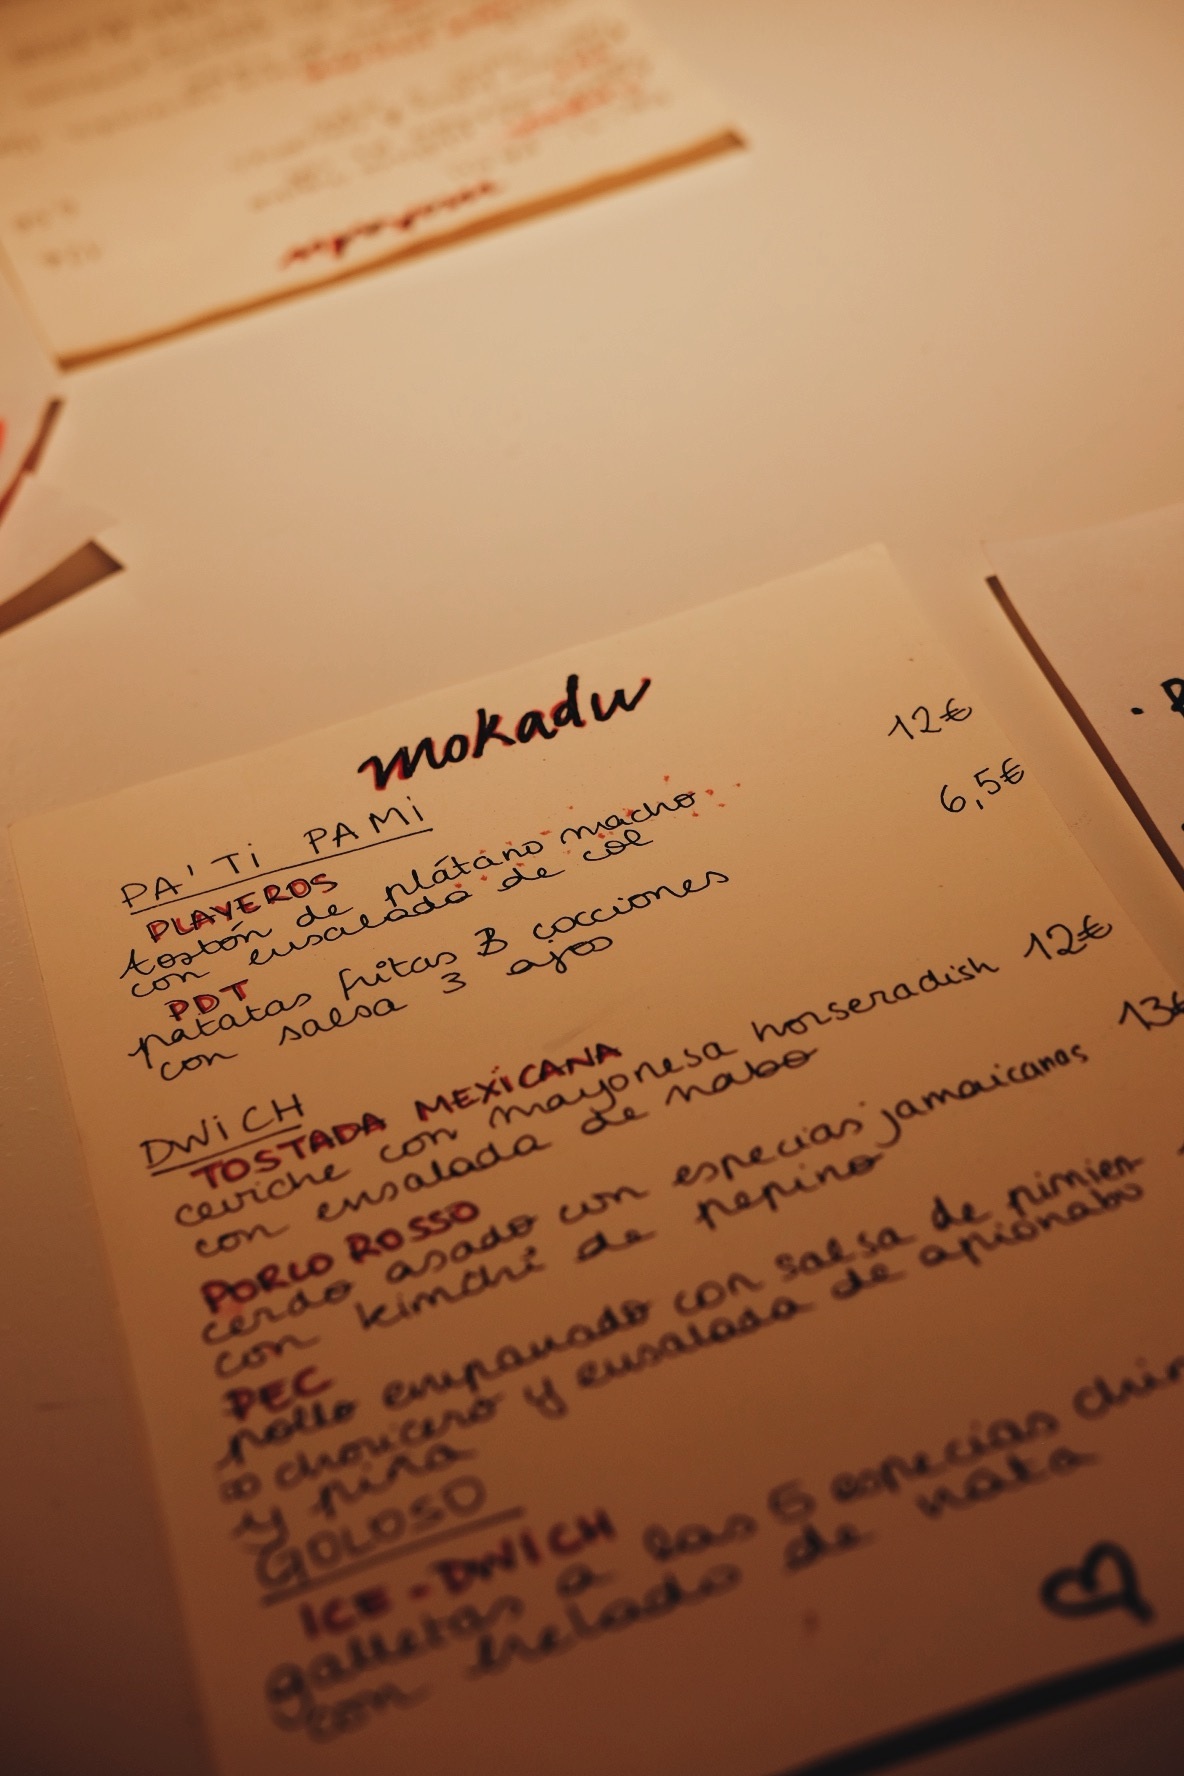 mokadu
PA' Ti PAMi
PLAYEROS 12€
tostón de plátano macho
con ensalada de col
PDT 6,5€
patatas fritas 3 cocciones
con salsa 3 ajos
DWiCH
TOSTADA MEXiCANA
ceviche con mayonesa horseradish 12€
con ensalada de nabo
PORCO ROSSO
cerdo asado con especias jamaicanas 13€
con kimchi de pepino
PEC
pollo empanado con salsa de pimien
to choricero y ensalada de apionabo
y piña
GOLOSO
ICE-DWICH
galletas a las 5 especias
con helado de nata